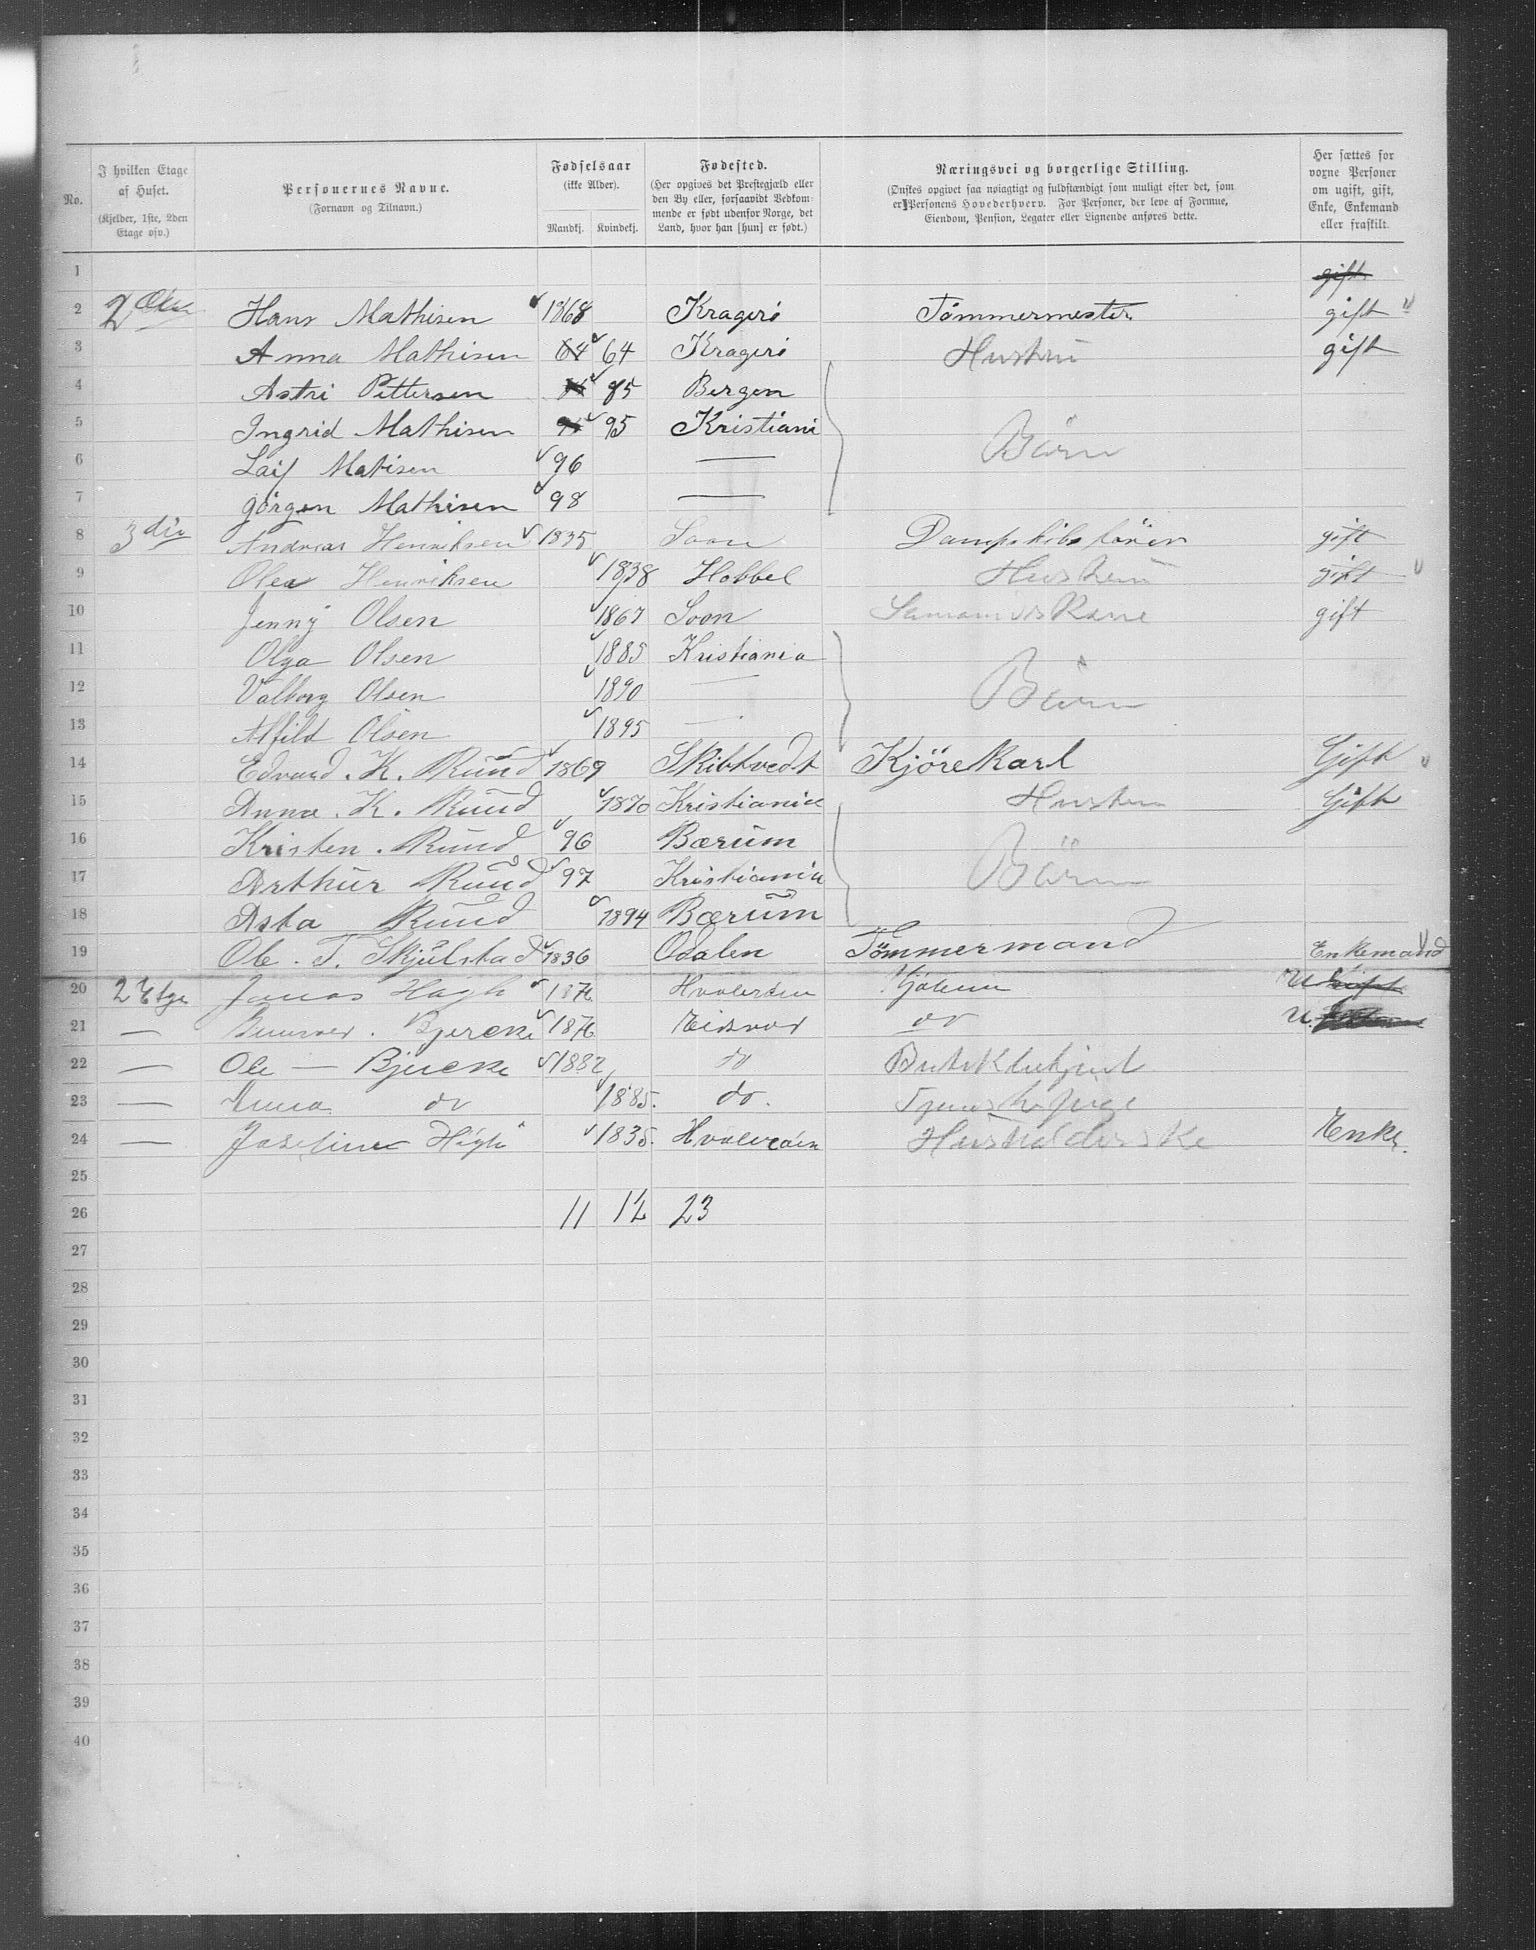 No.
I hvilken Etage af Huset. (Kjelder, 1ste, 2den Etage osv.)
Personernes Navne. (Fornavn og Tilnavn.)
Fødselsaar (ikke Alder). Mandkj. Kvindekj.
Fødested. (Her opgives det Prestegjæld eller den By eller, forsaavidt Vedkommende er født udenfor Norge, det Land, hvor han [hun] er født.)
Næringsvei og borgerlige Stilling. (Ønskes opgivet saa nøiagtigt og fuldstændigt som muligt efter det, som er Personens Hovederhverv. For Personer, der leve af Formue, Eiendom, Pension, Legater eller Lignende anføres dette.
Her sættes for voxne Personer om ugift, gift, Enke, Enkemand eller fraskilt.
1 gift
2 2 Hans Mathisen 1868 Kragerö Tömmermester gift
3 Anna Mathisen 64 64 Kragerö Hustru gift
4 Astri Pettersen 85 Bergen
5 Ingrid Mathisen 95 Kristiani Börn
6 Laif Matisen 96 —
7 Görgen Mathisen 98 —
8 3die Andreas Henriksen 1835 Soon Dampskibsförer gift
9 Olea Henriksen 1838 Hobbel Hustru gift
10 Jenny Olsen 1867 Soon kone gift
11 Olga Olsen 1885 Kristiania
12 Valborg Olsen 1890 — Börn
13 Alfild Olsen 1895 —
14 Edvard. K. Ruud 1869 Skibtvedt Kjörekarl Gift
15 Anna. K. Ruud 1870 Kristiania Hustru Gift
16 Kristen. Ruud 96 Bærum Börn
17 Arthur Ruud 97 Kristiania
18 Asta Ruud 1894 Bærum
19 Ole. T. Skjulstad 1836 Odalen Tømmermand Enkemand
20 2 Etge Jonas Høgh 1876 Hvaleröen
21 — Bjercke 1876 Eidsvol do U.
22 — Ole — Bjercke 1882 do
23 — Anna do 1885. do. Tjenestepige
24 — Josefine Högh 1835. Hvaleröen Husholderske Enke.
25
26 11 12 23
27
28
29
30
31
32
33
34
35
36
37
38
39
40